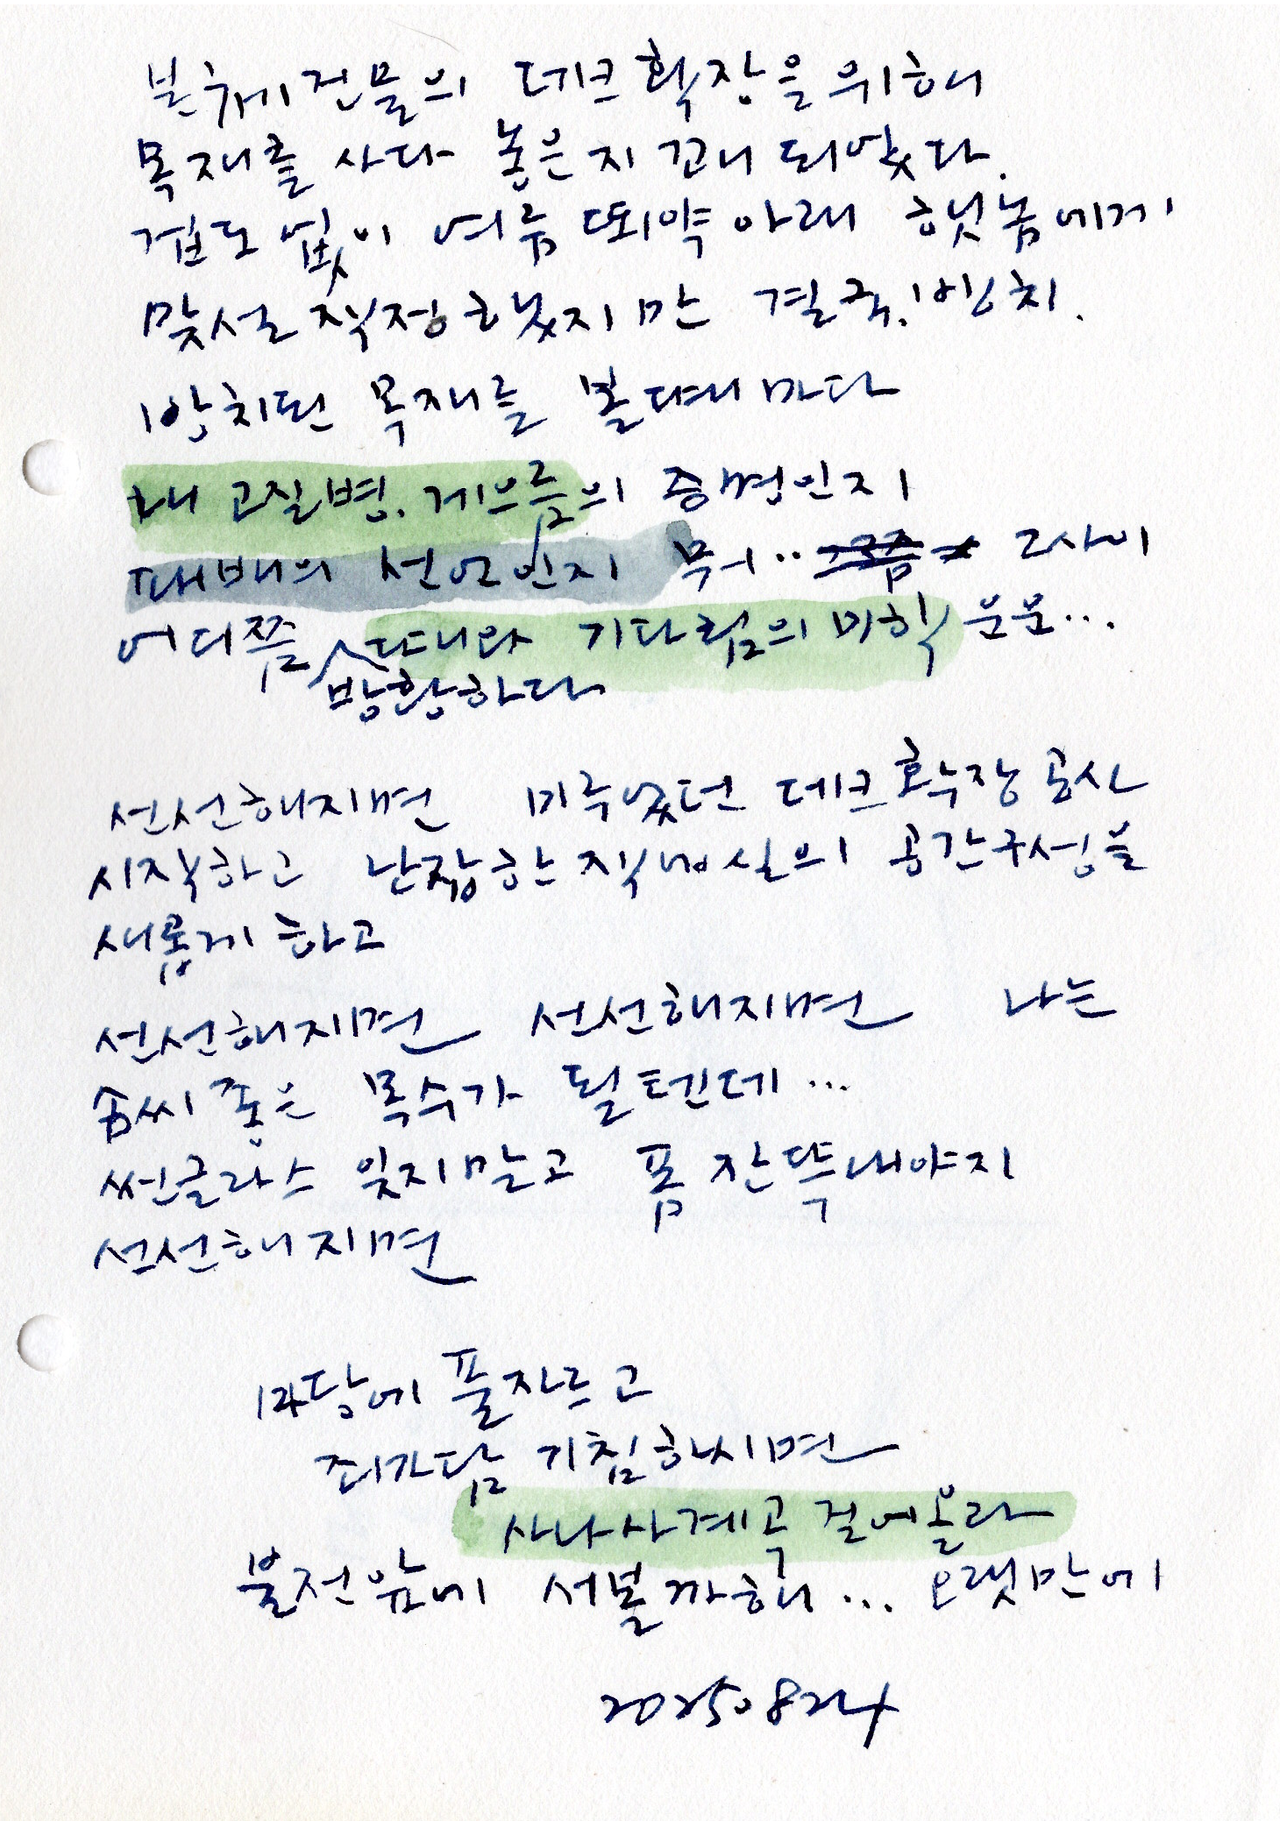 본채건물의 데크확장을 위해
목재를 사다 놓은지 꽤 되었다.
겁도 없이 여름 뙤약 아래 햇놈에게
맞설 작정했지만 결국, 방치.
방치된 목재를 볼때마다
내 고질병. 게으름의 증명인지
패배의 선언인지 뭐.. 그사이
어디쯤 방황하다 인내와 기다림의 미학 운운...
선선해지면 미루었던 데크확장공사
시작하고 난잡한 작업실의 공간구성을
새롭게 하고
선선해지면 선선해지면 나는
솜씨 좋은 목수가 될텐데...
썬글라스 잊지말고 폼 잔뜩내야지
선선해지면
마당에 풀자르고
죄가담 기침하시면
사나사계곡 걸어올라
불전앞에 서볼까해... 오랫만에
2025.824